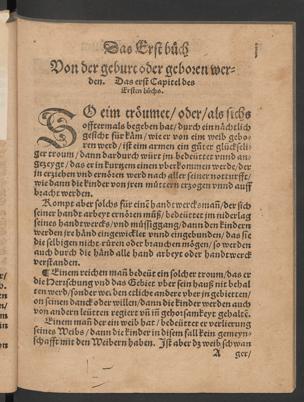 Das Erst büch
Von der geburt oder geboren wer-
den. Das erst Capitel des
Ersten büchs.
SO eim tröumet/ oder/ als sichs
offtermals begeben hat/ durch ein nächtlich
gesicht für käm/ wie er von ein weib gebo-
ren werd/ ist eim armen ein güter glückseli-
ger troum/ dann dardurch würt jm bedeüttet vnnd an-
gezeygt/ das er in kurtzem einen vberkommen werde/ der
in erziehen vnd ernören werd nach aller seiner notturfft/
wie dann die kinder von jren müttern erzogen vnnd auff
bracht werden.
Kompt aber solchs für einē handtwercksmañ/ der sich
seiner handt arbeyt ernören müß/ bedeüttet jm niderlag
seines handtwercks/ vnd müssiggang/ dann den kindern
werden jre händ eingewicklet vnnd eingebunden/ das sie
die selbigen nicht rüren oder brauchen mögen/ so werden
auch durch die händ alle hand arbeyt oder handtwerck
verstanden.
¶ Einem reichen mañ bedeüt ein solcher troum/ das er
die Herrschung vnd das Gebiet vber sein hauß nit behal
ten werd/ sonder werden etliche andere vber jn gebietten/
on seinen danck oder willen/ dann die kinder werden auch
von andern leütten regiert vñ in gehorsamkeyt gehaltē.
Einem mañ der ein weib hat/ bedeüttet er verlierung
seines Weibs/ dann die kinder in disem fall kein gemeyn-
schafft mit den Weibern haben. Ist aber dz weib schwan
A
ger/